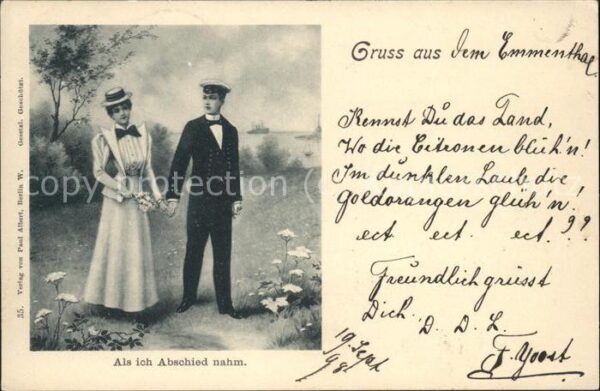 Gruss aus dem Emmenthal
Kennst Du das Land,
Wo die Citronen blüh'n!
Im dunklen Laub die
Goldorangen glüh'n!
ect ect. ect. !??
Freundlich grüsst
Dich. D. D. L.
F. Joost
19 Sept
/98.
Als ich Abschied nahm.
35. Verlag von Paul Albert, Berlin W. Gesetzl. Geschützt.
copyright protection